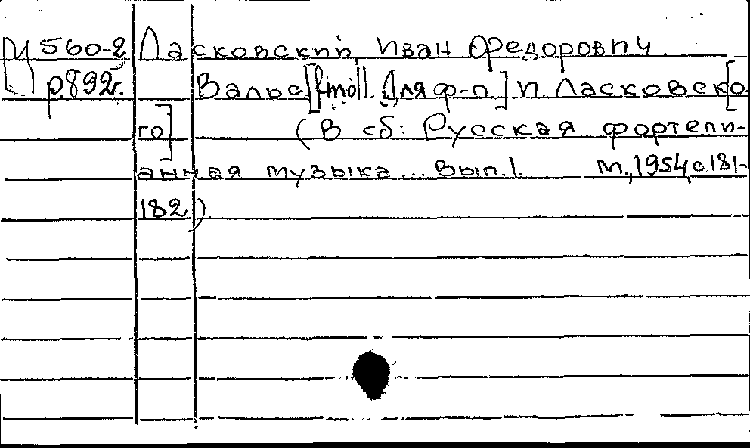 М 560-2 Ласковский, Иван Федорович
р.892г. Вальс [f moll. Для ф-п.] И. Ласковско[
го] (В сб: Русская фортепи-
анная музыка... Вып. I. М., 1954, с. 181-
182)